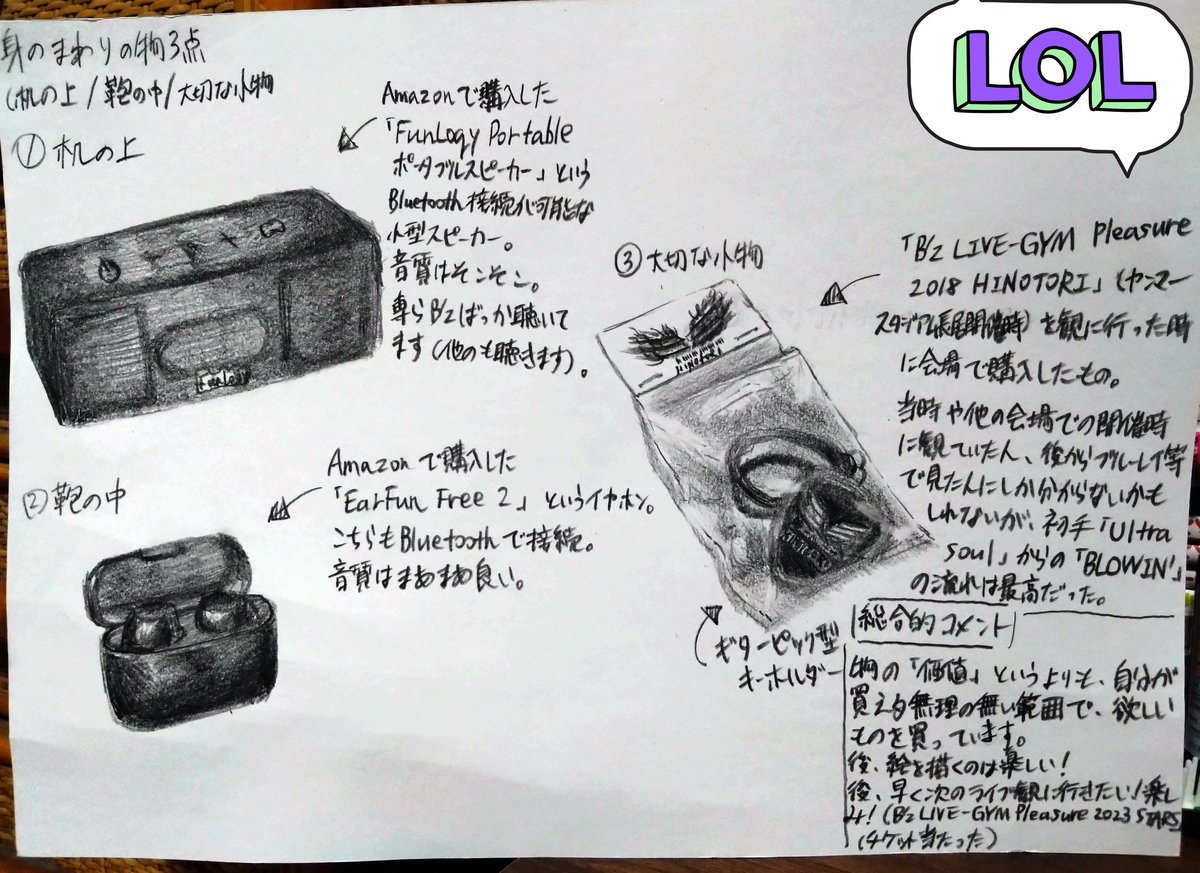 身のまわりの物3点
(机の上/鞄の中/大切な小物
① 机の上
Amazonで購入した
「FunLogy Portable
ポータブルスピーカー」という
Bluetooth接続が可能な
小型スピーカー。
音質はそこそこ。
専らB'zばっか聴いて
ます(他のも聴きます)。
FunLogy
② 鞄の中
Amazonで購入した
「EarFun Free 2」というイヤホン。
こちらもBluetoothで接続。
音質はまあまあ良い。
③ 大切な小物
HINOTORI
「B'z LIVE-GYM Pleasure
2018 HINOTORI」(ヤンマー
スタジアム長居開催時)を観に行った時
に会場で購入したもの。
当時や他の会場での開催時
に観ていた人、後からブルーレイ等
で見た人にしか分からないかも
しれないが、初手「Ultra
soul」からの「BLOWIN'」
の流れは最高だった。
ギターピック型
キーホルダー
総合的コメント
物の「価値」というよりも、自分が
買える無理の無い範囲で、欲しい
ものを買っています。
後、絵を描くのは楽しい!
後、早く次のライブ観に行きたい!楽し
み!(B'z LIVE-GYM Pleasure 2023 STARS
(チケット当たった)
LOL